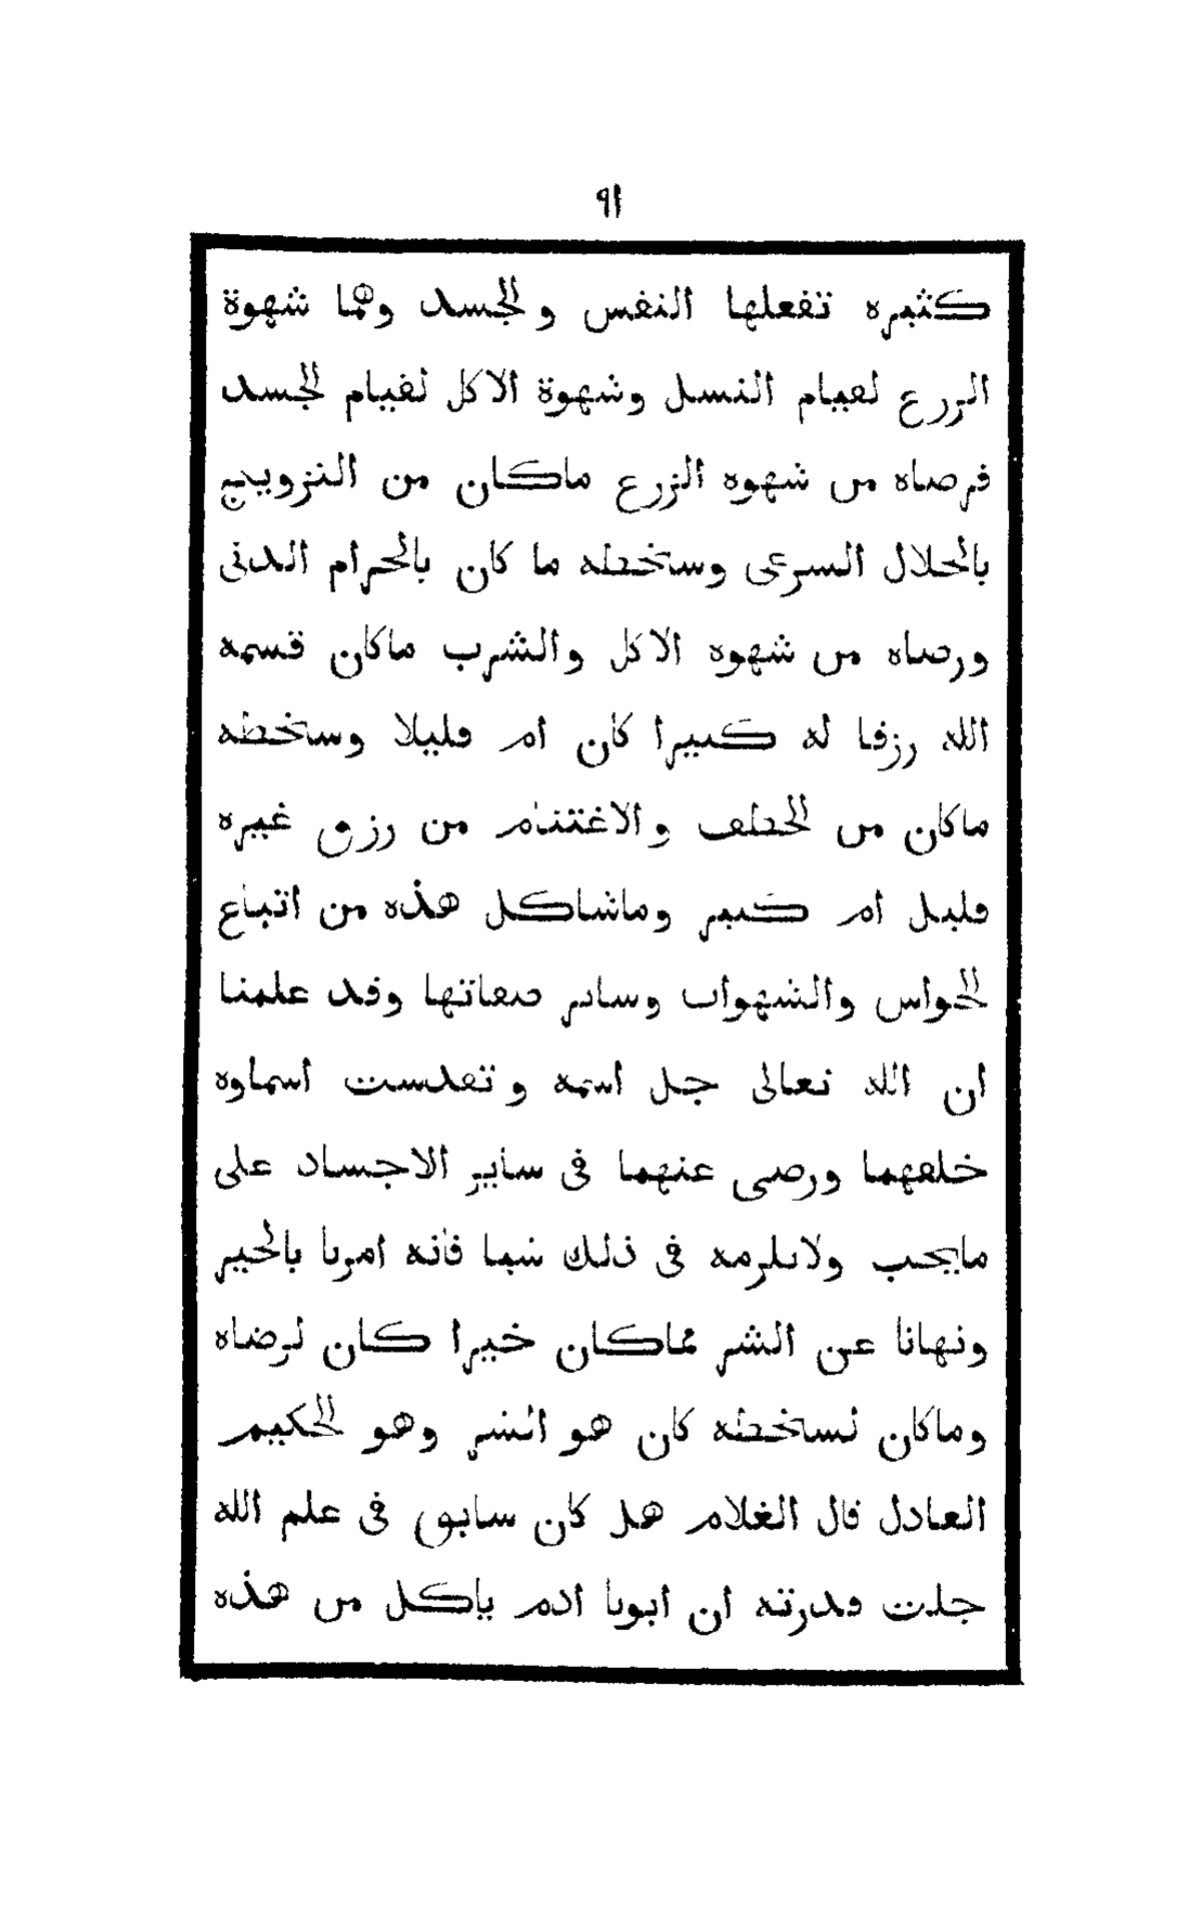 ٩١
كثيره تفعلها النفس والجسد وهما شهوة
الزرع لقيام النسل وشهوة الاكل لقيام الجسد
فرضاه من شهوه الزرع ماكان من التزويج
بالحلال الشرعى وسخطه ما كان بالحرام الدنى
ورضاه من شهوه الاكل والشرب ماكان قسمه
الله رزقا له كبيرا كان ام قليلا وسخطه
ماكان من الخطف والاغتنام من رزق غيره
قليل ام كبير وماشاكل هذه من اتباع
الحواس والشهوات وساير صفاتها وقد علمنا
ان الله تعالى جل اسمه وتقدست اسماوه
خلقهما ورضى عنهما فى ساير الاجساد على
مايجب ولايلزمه فى ذلك شيا فانه امرنا بالخير
ونهانا عن الشر فماكان خيرا كان لرضاه
وماكان لسخطه كان هو الشر وهو الحكيم
العادل قال الغلام هل كان سابق فى علم الله
جلت قدرته ان ابونا ادم ياكل من هذه